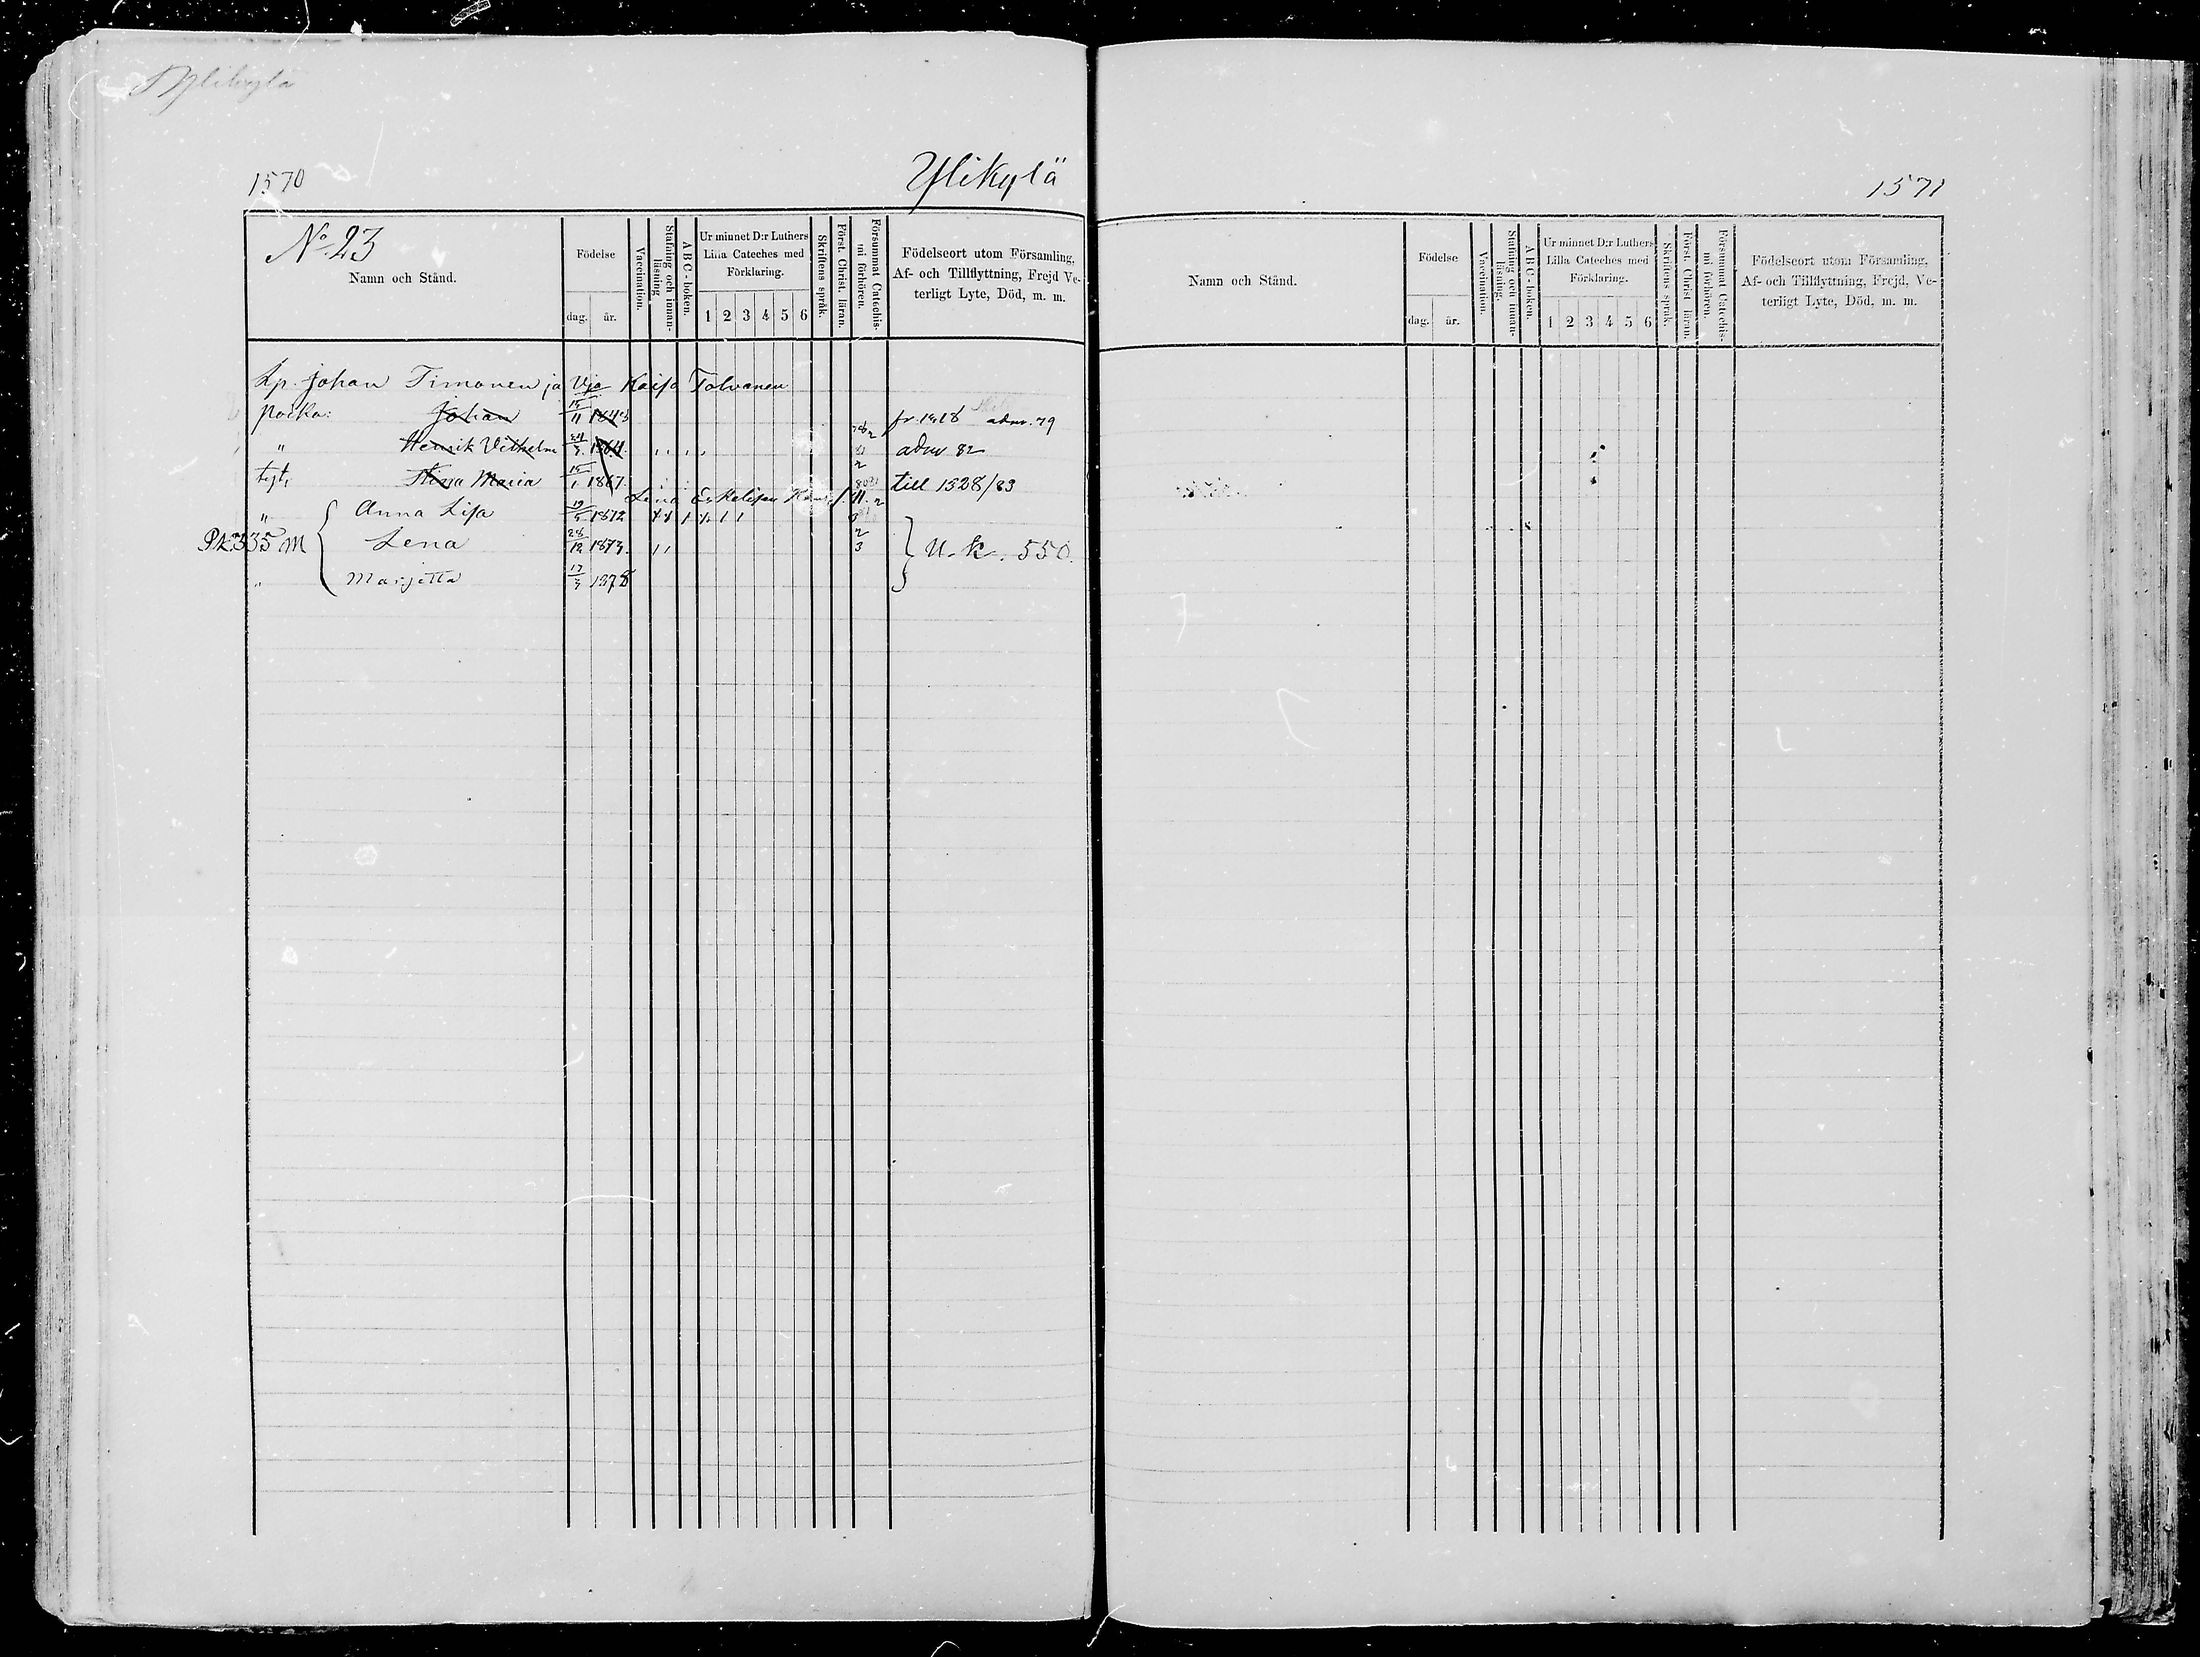 Ylikylä
1570
Ylikylä
No 23
Namn och Stånd.
Födelse
dag. år.
Vaccination.
Stafning och innanläsning
ABC-boken.
Ur minnet D:r Luthers Lilla Cateches med Förklaring.
1 2 3 4 5 6
Skriftens språk.
Först. Christ. läran.
Försummat Catechismi förhören.
Födelseort utom Församling, Af- och Tillflyttning, Frejd Veterligt Lyte, Död, m. m.
Lp. Johan Timonen ja Vjo Kaisa Tolvanen
poika: Johan 11 1843 adm. 79
" Henrik Vilhelm 1864 adm 82
tyt, Stina Maria 15/1 1867 till 1528/83
" Anna Lisa 1872
Pk. 335 M Lena 28/12 1873 U. k. 550.
" Marjetta 17/3 1878
1571
Namn och Stånd.
Födelse
dag. år.
Vaccination.
Stafning och innanläsning.
ABC-boken.
Ur minnet D:r Luthers Lilla Cateches med Förklaring.
1 2 3 4 5 6
Skriftens språk.
Först. Christ läran.
Försummat Catechismi förhören.
Födelseort utom Församling, Af- och Tillflyttning, Frejd, Veterligt Lyte, Död, m. m.